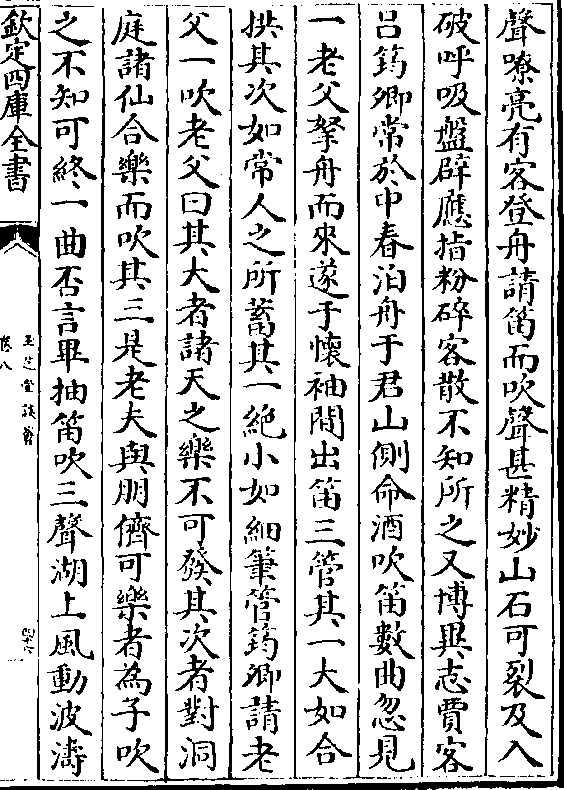 聲嘹亮有客登舟請笛而吹聲甚精妙山石可裂及入
破呼吸盤辟應指粉碎客散不知所之又博異志賈客
吕筠卿常於中春泊舟于君山側命酒吹笛數曲忽見
一老父拏舟而來遂于懷袖間出笛三管其一大如合
拱其次如常人之所蓄其一絶小如細筆管筠卿請老
父一吹老父曰其大者諸天之樂不可發其次者對洞
庭諸仙合樂而吹其三是老夫與朋儕可樂者為子吹
之不知可終一曲否言畢抽笛吹三聲湖上風動波濤
欽定四庫全書
玉芝堂談薈
卷八